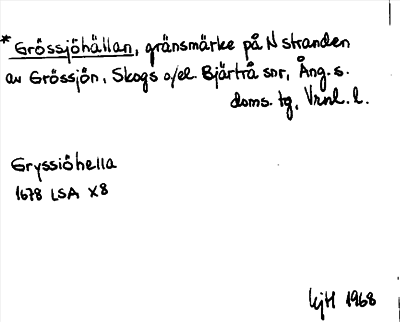 * Grössjöhällan, gränsmärke på N stranden
av Grössjön, Skogs o/el. Bjärtrå snr, Ång. s.
doms. tg, Vrnl. l.
Gryssiöhella
1678 LSA X8
1968